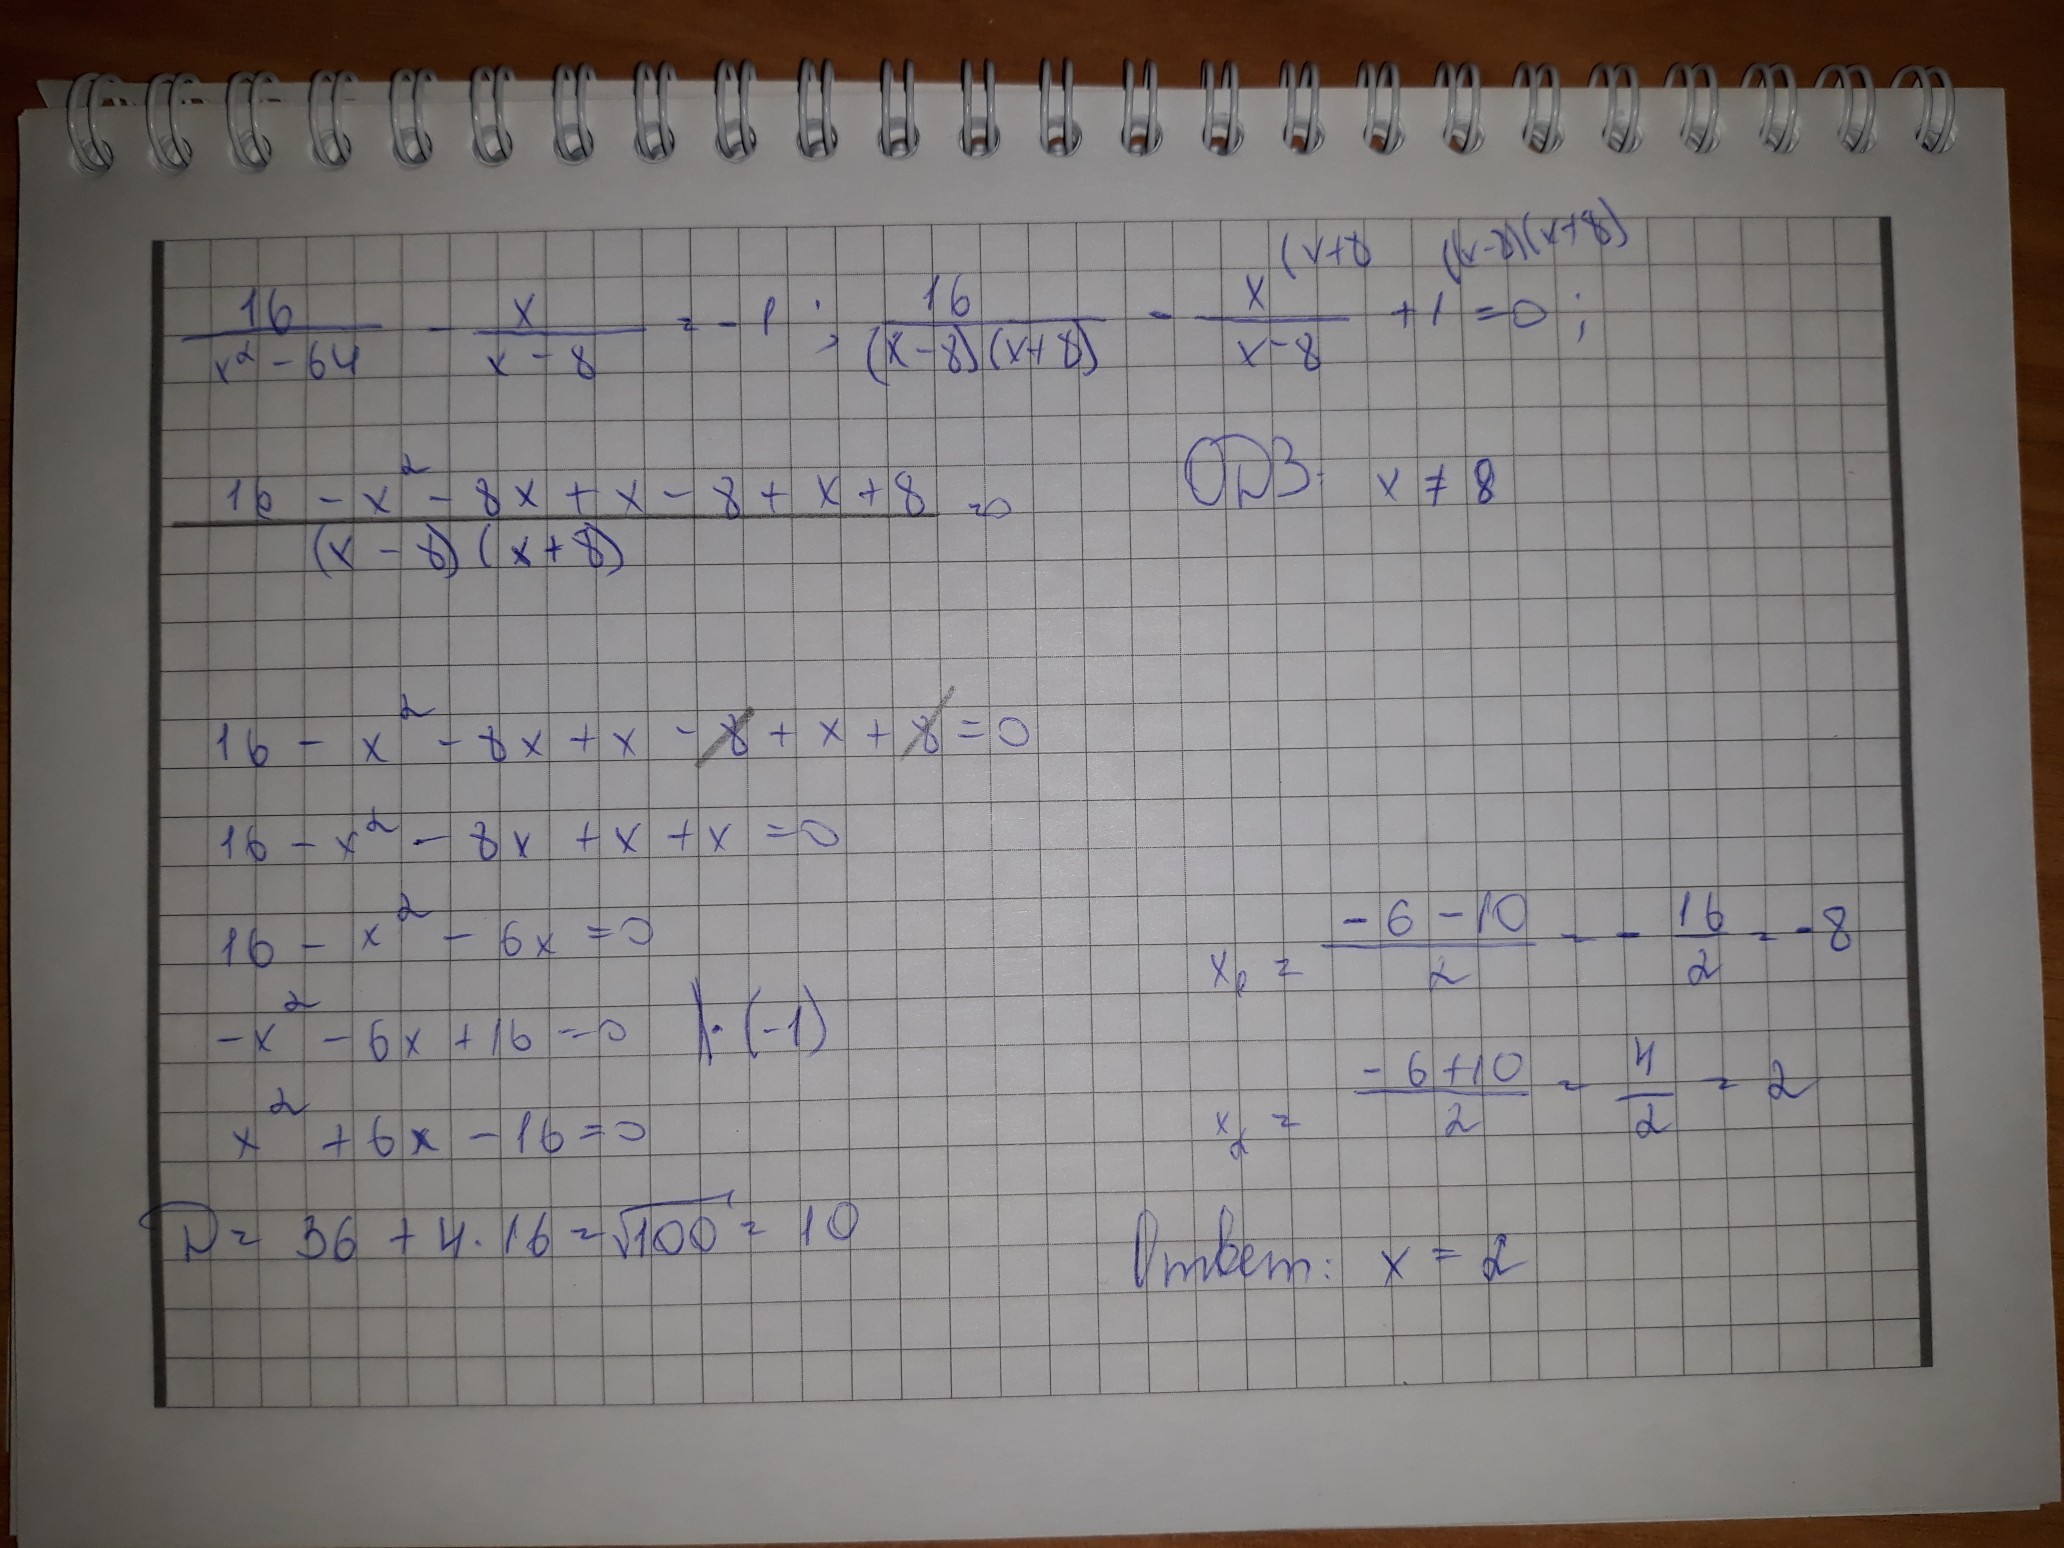 (x+8 (x-8)(x+8)
16/(x² - 64) - x/(x - 8) = -1 ; 16/((x-8)(x+8)) - x/(x-8) + 1 = 0 ;
(16 - x² - 8x + x - 8 + x + 8)/((x - 8)(x + 8)) = 0
ОДЗ: x ≠ 8
16 - x² - 8x + x - 8 + x + 8 = 0
16 - x² - 8x + x + x = 0
16 - x² - 6x = 0
-x² - 6x + 16 = 0 |·(-1)
x² + 6x - 16 = 0
D = 36 + 4·16 = √100 = 10
x₁ = (-6 - 10)/2 = - 16/2 = -8
x₂ = (-6 + 10)/2 = 4/2 = 2
Ответ: x = 2